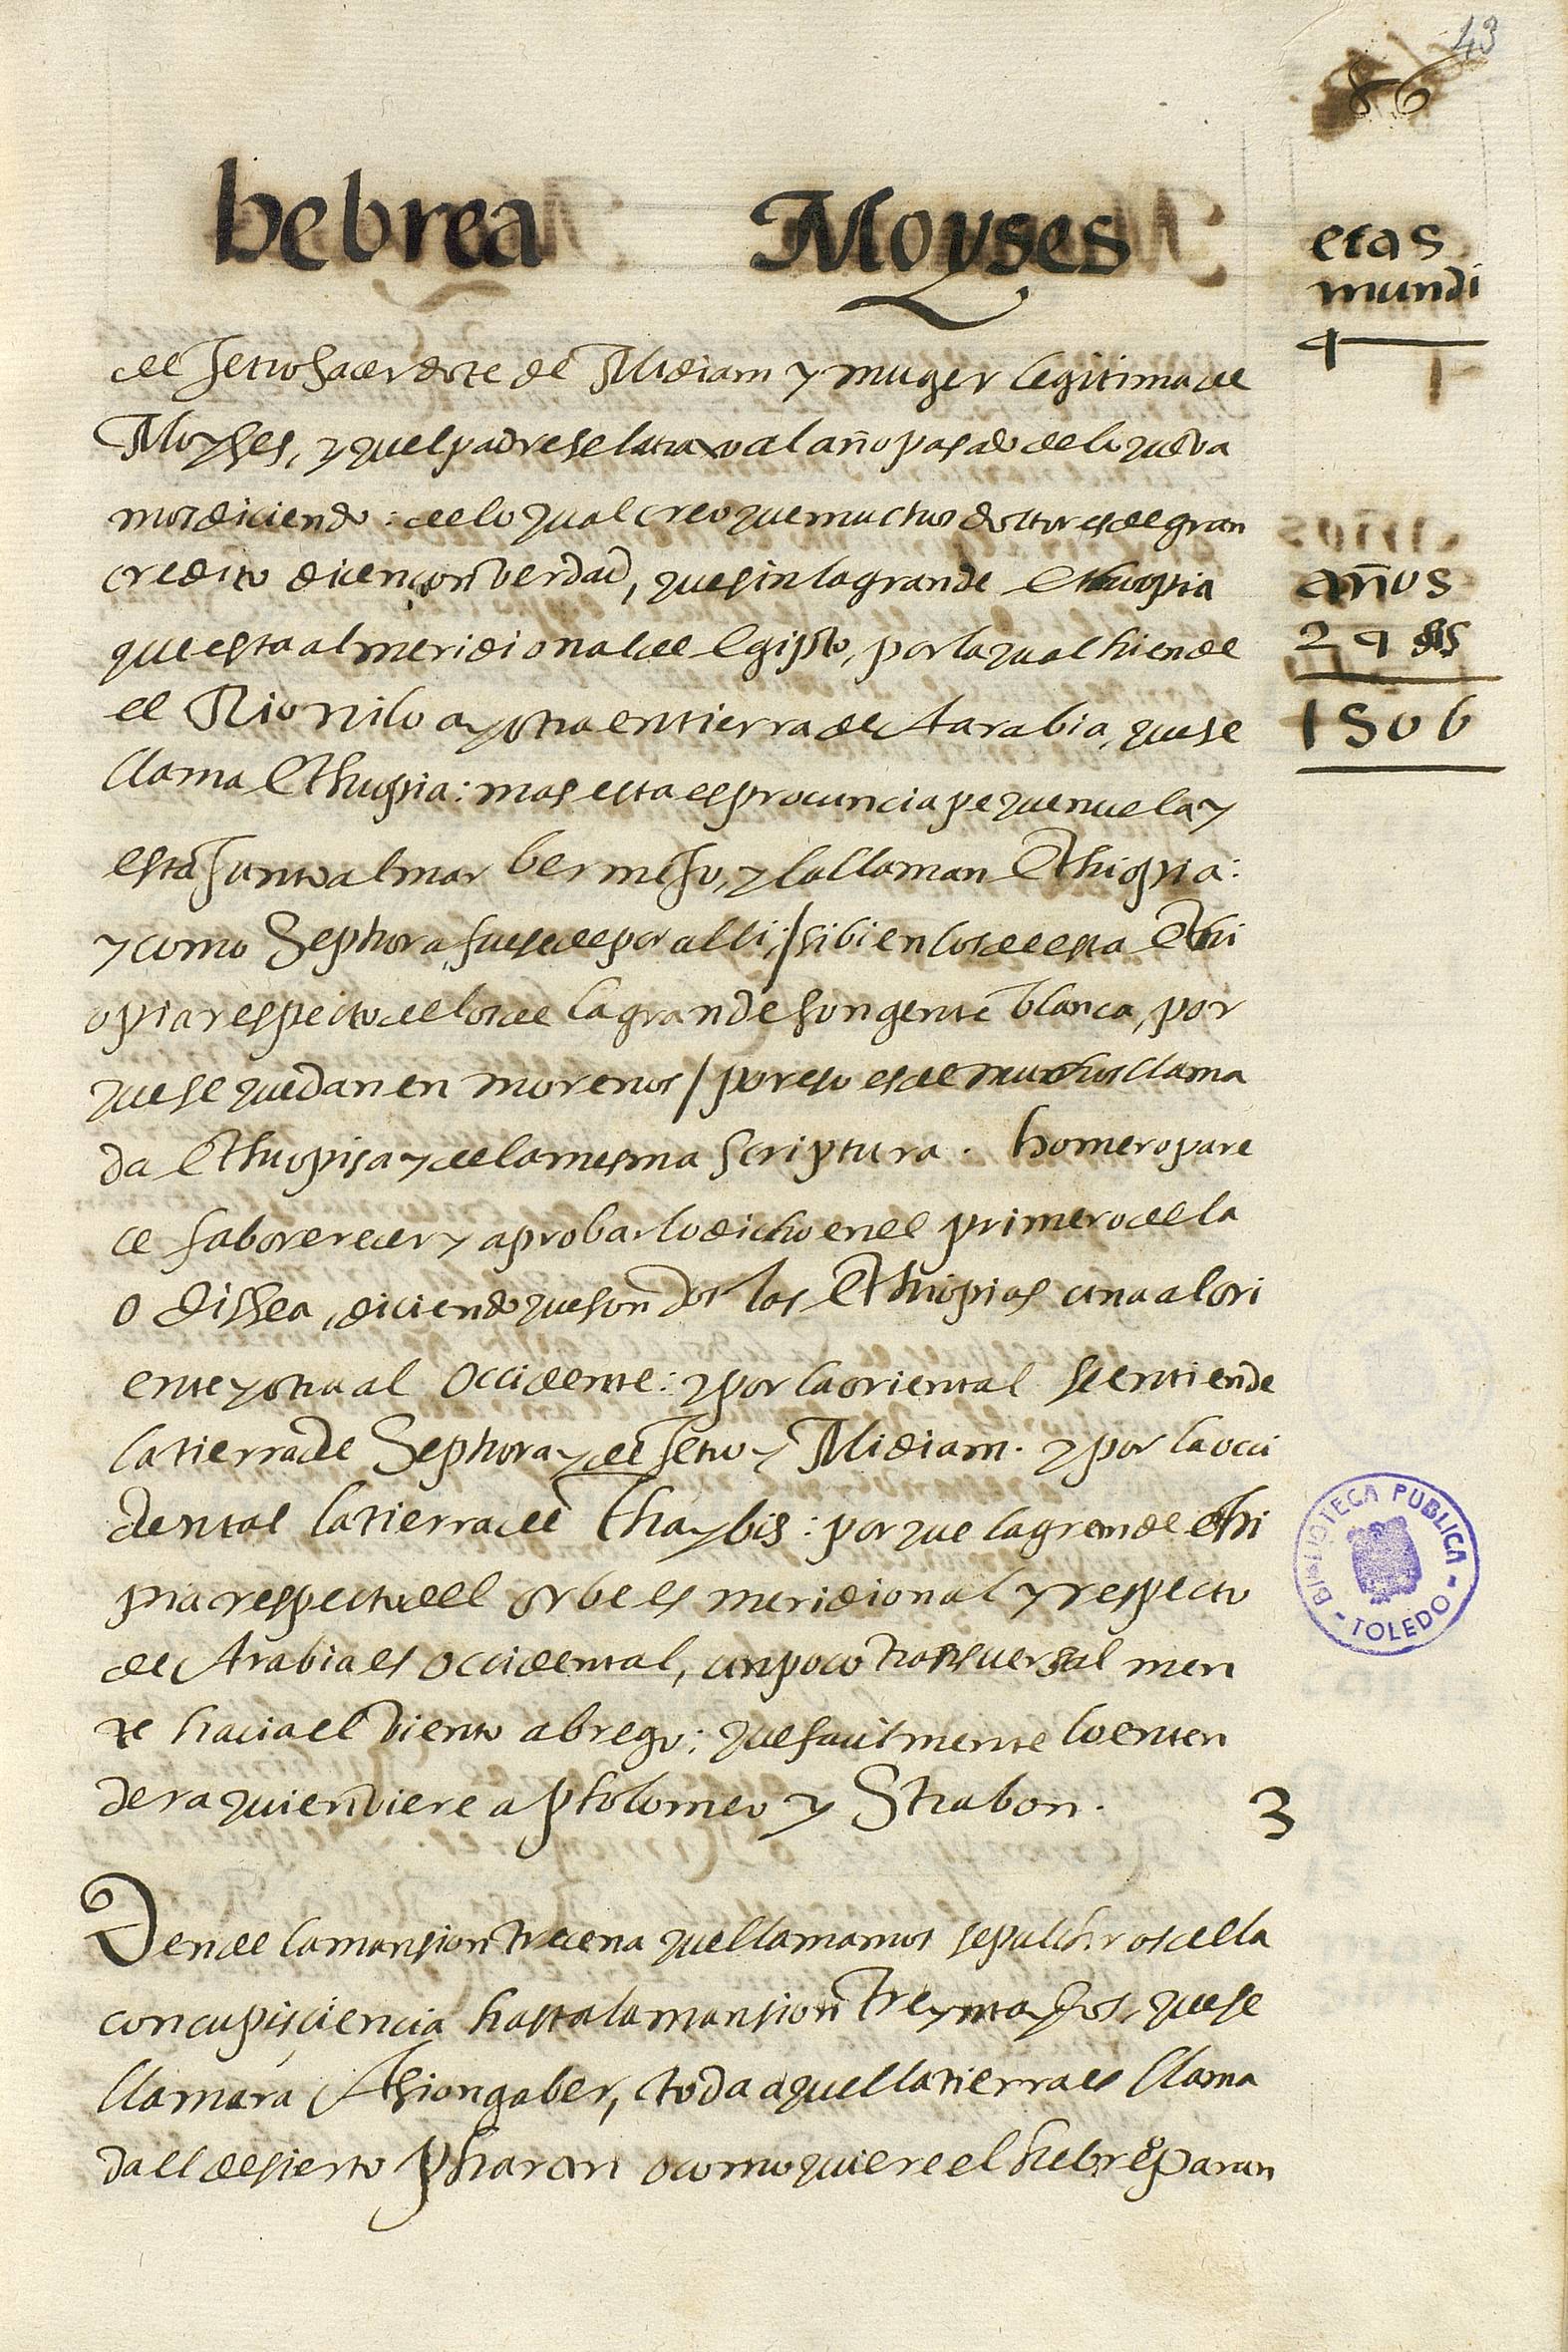 43
86
hebrea Moyses
etas
mundi
4
de Jetro sacerdote de Midiam y muger legitima de
Moyses, y que el padre se la traxo al año pasado de lo que va
mos diciendo: de lo qual creo que muchos doctores de gran
credito dicen con verdad, que sin la grande Ethiopia
que esta al meridional de Egipto, por la qual hiende
el Rio nilo ay otra en tierra de Aarabia, que se
llama Ethiopia: mas esta es prouincia pequenuela y
esta Junto al mar bermeJo, y la llaman Ethiopia:
y como Sephora fuese de por alli;/ si bien los de esta Ethi
opia respecto de los de la grande son gente blanca, por
que se quedan en morenos / por eso es de muchos llama
da Ethiopisa y de la mesma scriptura. homero pare
ce faborerecer y aprobar lo dicho en el primero de la
odissea, diciendo que son dos las Ethiopias una al ori
ente y otra al occidente: y por la oriental se entiende
la tierra de Sephora y de Jetro y Midiam. y por la occi
dental la tierra de Thaybis: porque la grande ethi
pia respecto del orbe es meridional y respecto
de Arabia es occidental, un poco transuersal men
te hacia el viento abrego: que facilmente lo enten
dera quien viere a ptolomeo y Strabon.
años
1506
3
Dende la mansion trecena que llamamos sepulchros de la
concupisciencia hasta la mansion treynta y dos, que se
llamara Asiongaber, toda aquella tierra es llama
da el desierto Pharan o como quiere el hebreo paran
BIBLIOTECA PUBLICA
- TOLEDO -